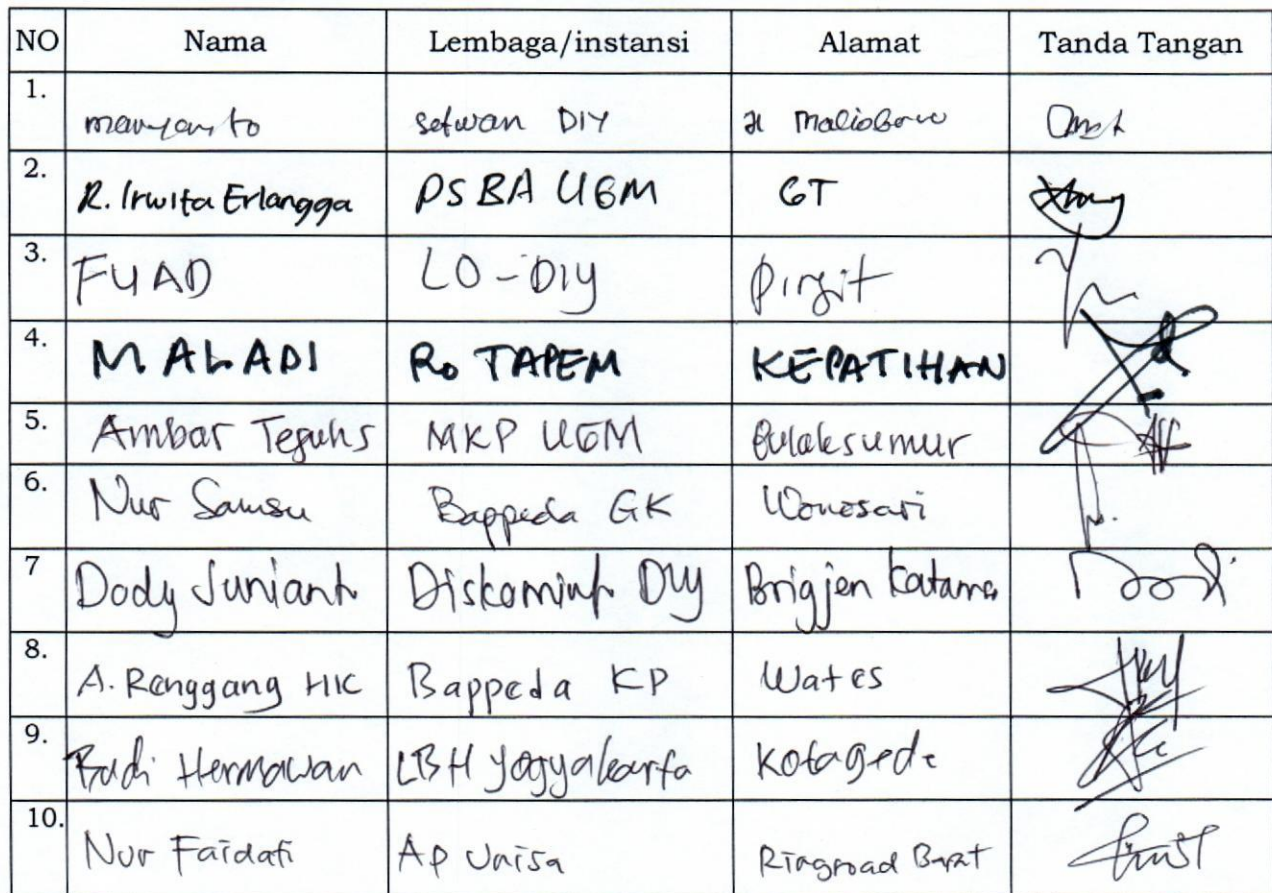 NO Nama Lembaga/instansi Alamat Tanda Tangan
1. maryanto setwan DIY Jl Malioboro
2. R. Irwita Erlangga PSBA UGM GT
3. FUAD LO-DIY Pingit
4. MALADI Ro TAPEM KEPATIHAN
5. Ambar Teguhs MKP UGM Bulaksumur
6. Nur Samsu Bappeda GK Wonosari
7 Dody Juniant Diskominf DIY Brigjen Katamso
8. A. Renggang HK Bappeda KP Wates
9. Budi Hermawan LBH Yogyakarta Kotagede
10. Nur Faidati AP Unisa Ringroad Barat